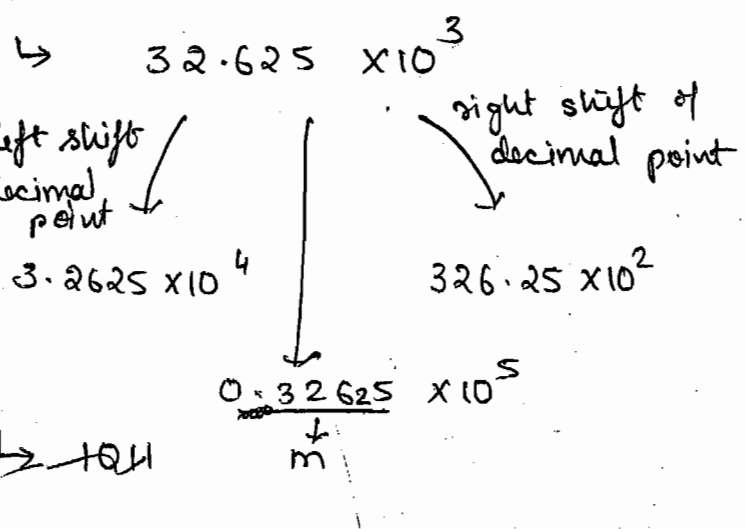 ↳ 32.625 ×10³
eft shift
ecimal
point
right shift of
decimal point
3.2625 ×10⁴
326.25 ×10²
0.32625 ×10⁵
m